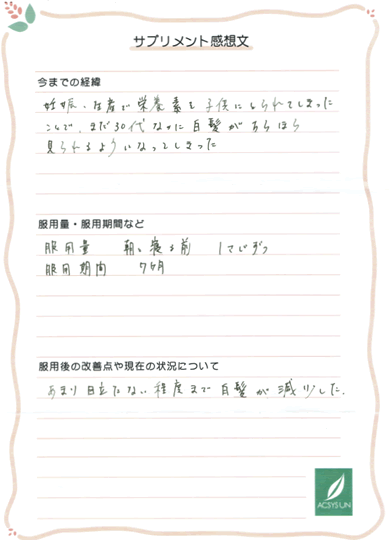 サプリメント感想文
今までの経緯
妊娠、出産で栄養素を子供にとられてしまった
ことで、まだ30代なのに白髪がちらほら
見られるようになってしまった
服用量・服用期間など
服用量 朝、寝る前 1つぶずつ
服用期間 7ヶ月
服用後の改善点や現在の状況について
あまり目立たない程度まで白髪が減少した。
ACSYSUN